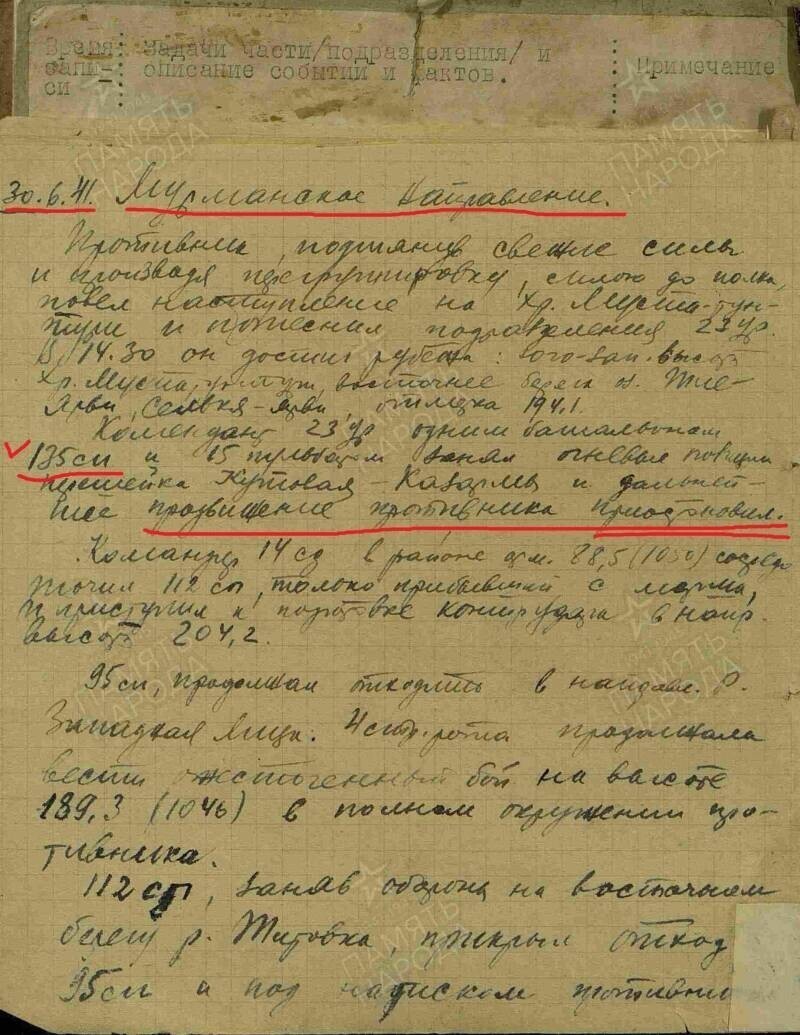 Время запи-си : Задачи части/подразделения/ и : Примечание
описание событий и фактов.
ПАМЯТЬ НАРОДА
30.6.41. Мурманское направление.
Противник, подтянув свежие силы
и произведя перегруппировку, силою до полка,
повел наступление на хр. Муста-тун-
тури и потеснил подразделения 23 ур.
В 14.30 он достиг рубежа: юго-зап. высот
хр. Муста-тунтури, восточнее берега
Ярви, отметка 194.1.
Комендант 23 ур одним батальоном
135 сп и 15 занял огневые позиции
перешейка Кутовая - Казармы и дальней-
шее продвижение противника приостановил.
Командир 14 сд в районе 88,5 (1050) сосредо
точил 112 сп, только прибывший с марша,
и приступил к подготовке контрудара в напр.
высот 204,2.
95 сп, продолжал отходить в направл. р.
Западная Лица. 4 стр. рота продолжала
вести ожесточенный бой на высоте
189,3 (1046) в полном окружении про-
тивника.
112 сп, заняв оборону на восточном
берегу р. Титовка, прикрыл отход
95 сп и под натиском противни